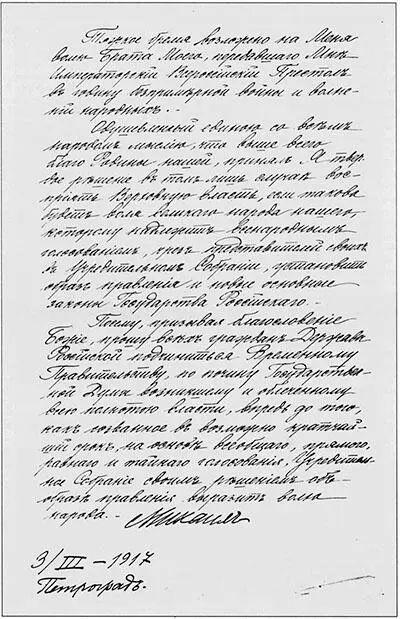 Тяжкое бремя возложено на Меня
волею Брата Моего, передавшего Мнѣ
Императорскій Всероссійскій Престолъ
въ годину безпримѣрной войны и волне-
ній народныхъ. -
Одушевленный единою со всѣмъ
народомъ мыслію, что выше всего
благо Родины нашей, принялъ Я твер-
дое рѣшеніе въ томъ лишь случаѣ вос-
пріять Верховную власть, если такова
будетъ воля великаго народа нашего,
которому надлежитъ всенароднымъ
голосованіемъ, чрезъ представителей своихъ
въ Учредительномъ Собраніи, установить
образъ правленія и новые основные
законы Государства Россійскаго.
Посему, призывая благословеніе
Божіе, прошу всѣхъ гражданъ Державы
Россійской подчиниться Временному
Правительству, по почину Государствен-
ной Думы возникшему и облеченному
всею полнотою власти, впредь до того,
какъ созванное въ возможно кратчай-
шій срокъ, на основѣ всеобщаго, прямого,
равнаго и тайнаго голосованія, Учредитель-
ное Собраніе своимъ рѣшеніемъ объ
образѣ правленія выразитъ волю
народа. - Михаилъ
3/III - 1917
Петроградъ.